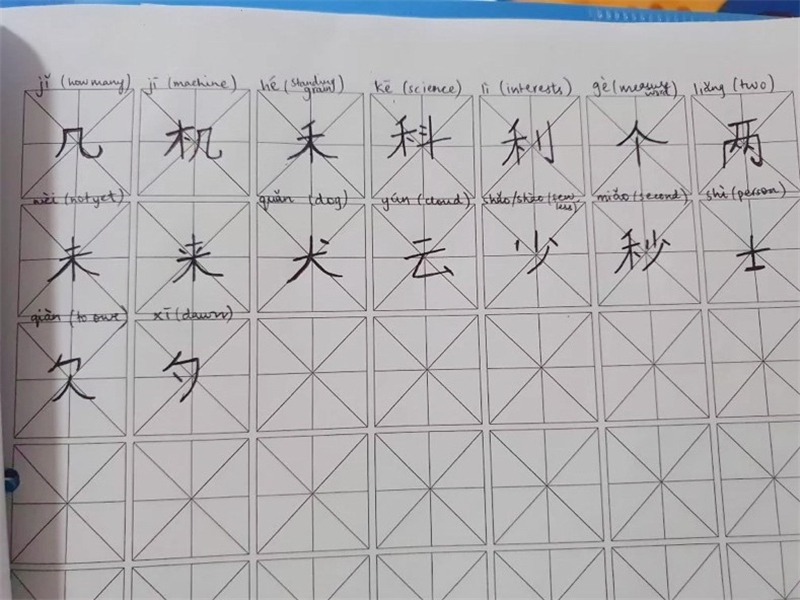 jǐ (how many) jī (machine) hé (standing grain) kē (science) lì (interests) gè (measure word) liǎng (two)
几 机 禾 科 利 个 两
wèi (not yet) quǎn (dog) yún (cloud) shǎo/shào (few, less) miǎo (second) shì (person)
未 来 犬 云 少 秒 士
qiàn (to owe) xī (dawn)
欠 夕